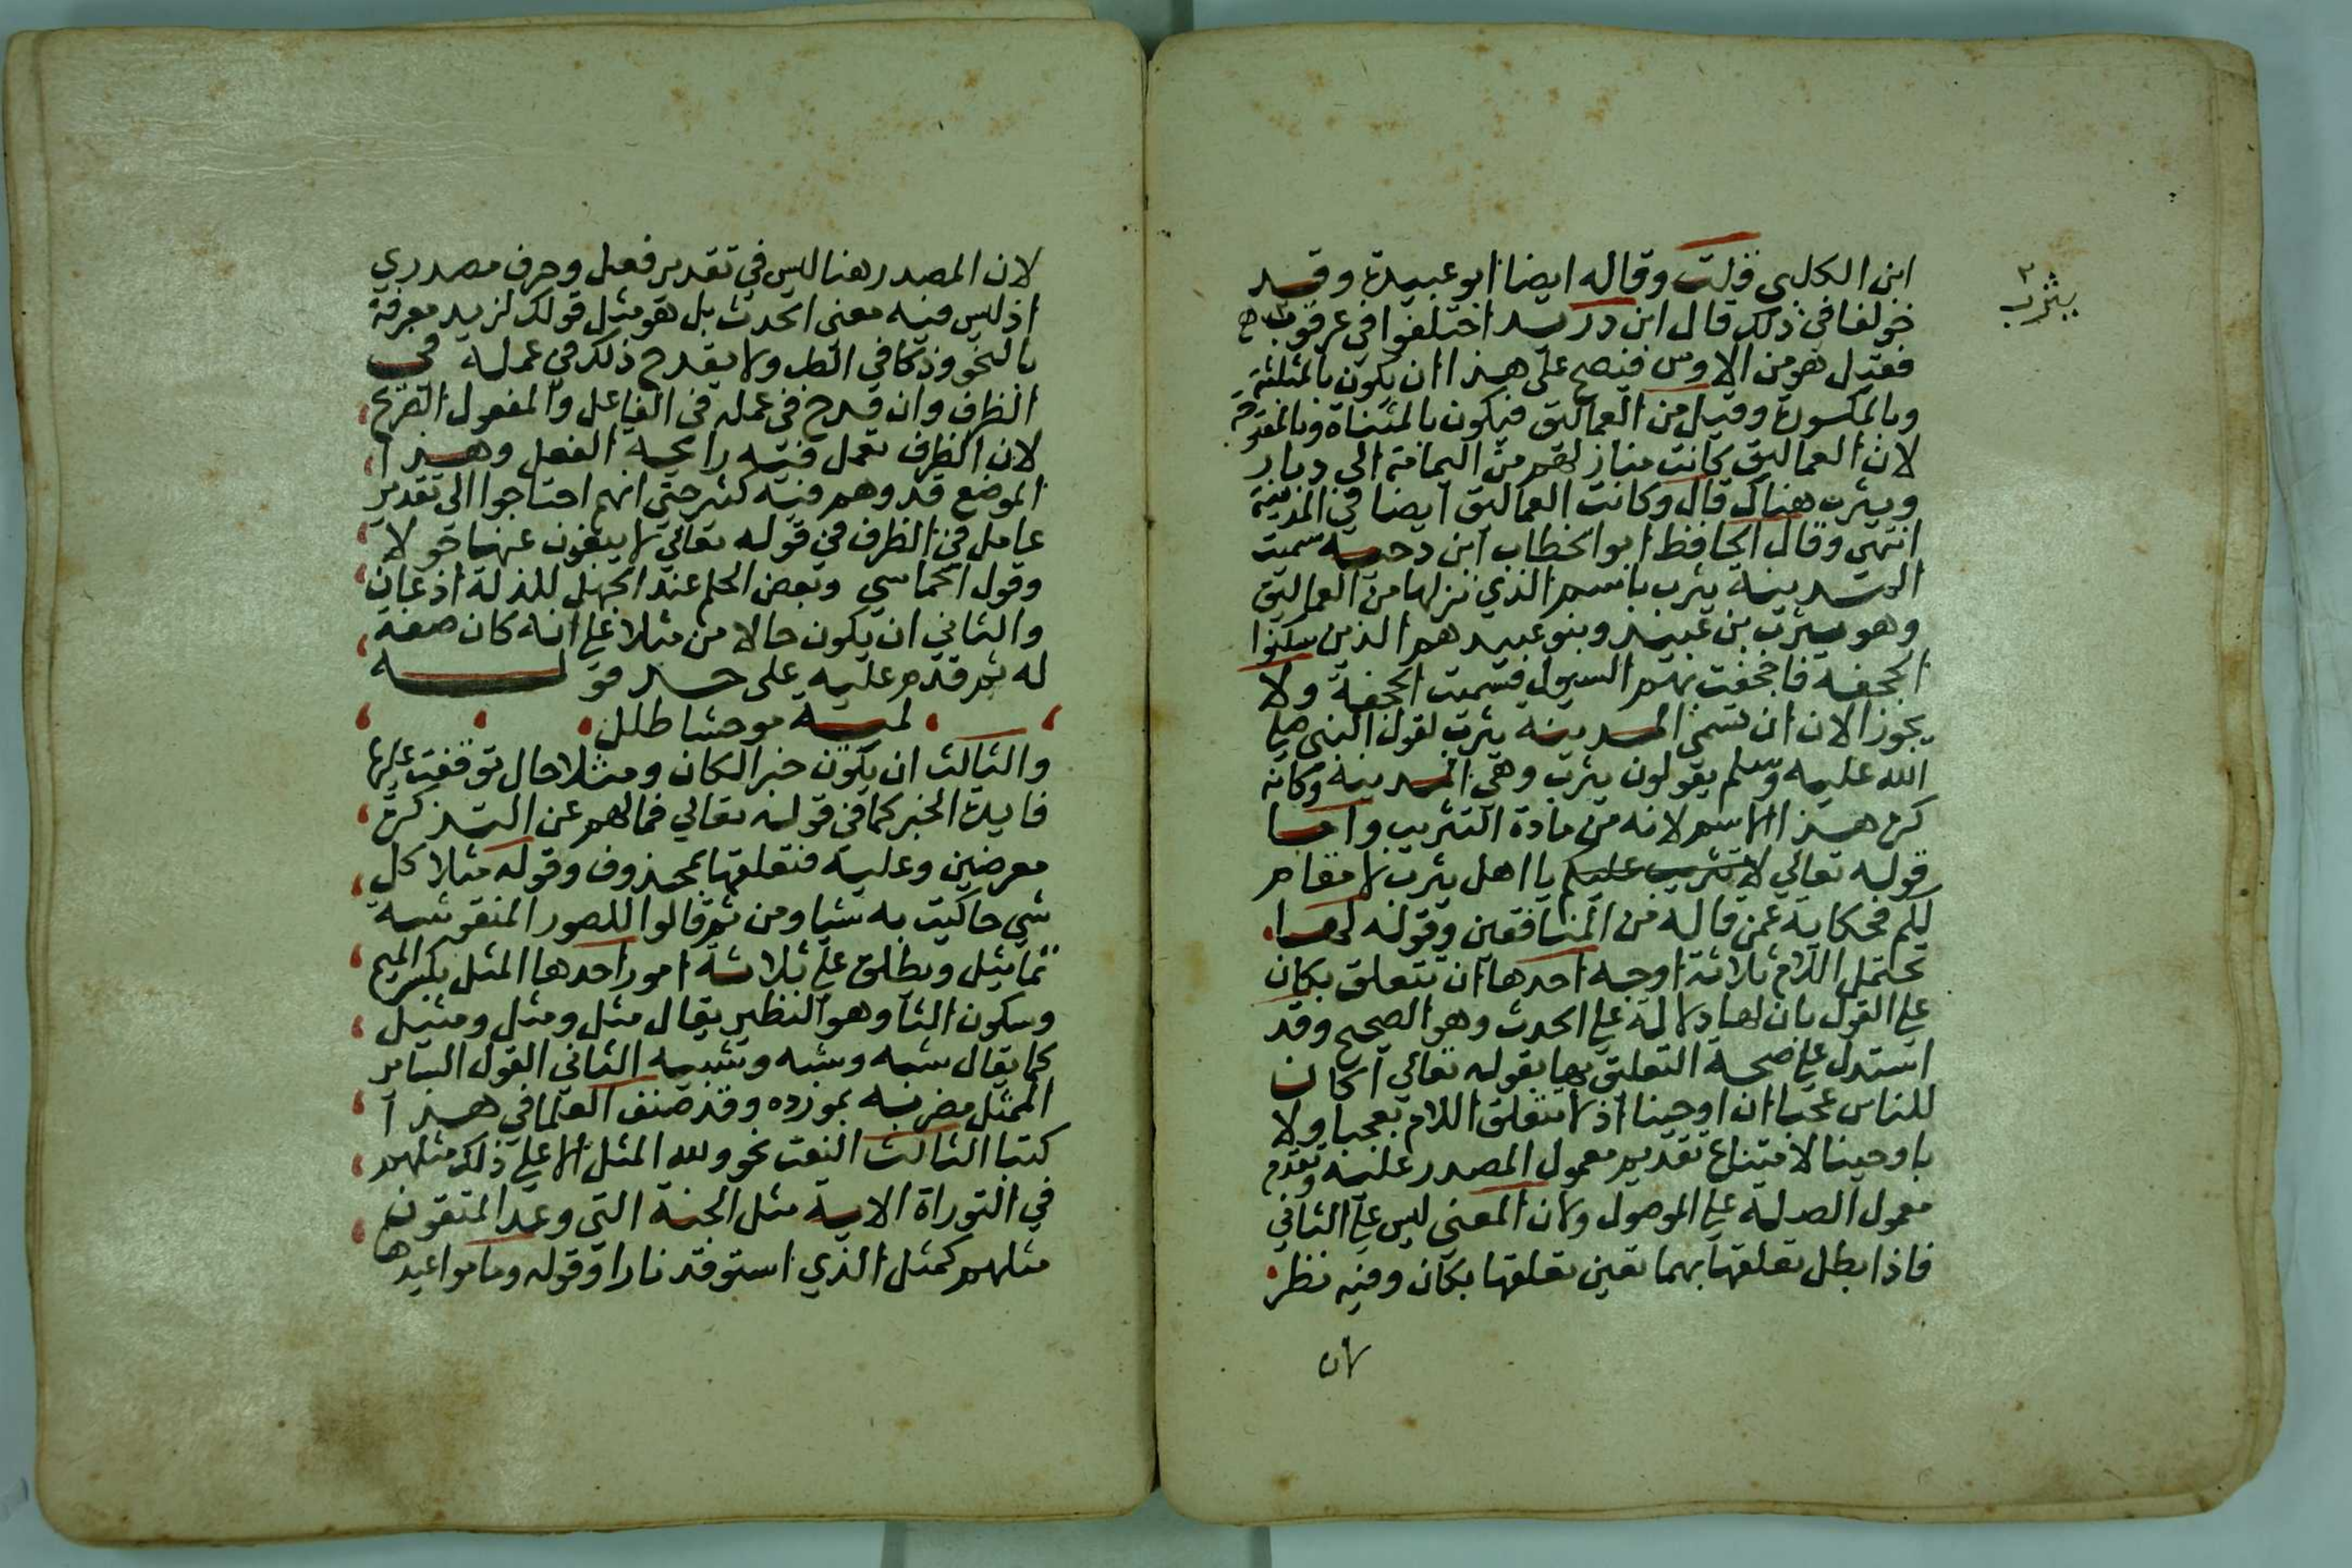 ابن الكلبي قلت وقاله ايضا ابو عبيدة وقد
خولفا في ذلك قال ابن دريد اختلفوا في عرقوب
فقيل هو من الاوس فيصح على هذا ان يكون بالمثلثة
وبالمكسورة وقيل من العماليق فيكون بالمثناة وبالمفتوحة
لان العماليق كانت منازلهم من اليمامة الى وبار
ويترب هناك قال وكانت العماليق ايضا في المدينة
انتهى وقال الحافظ ابو الخطاب ابن دحية سميت
المدينة يثرب باسم الذي نزلها من العماليق
وهو يثرب بن عبيد وبنو عبيد هم الذين سكنوا
الجحفة فاجحفت بهم السيول فسميت الجحفة ولا
يجوز الان ان تسمى المدينة يثرب لقول النبي صلى
الله عليه وسلم يقولون يثرب وهي المدينة وكانه
كره هذا الاسم لانه من مادة التثريب واما
قوله تعالي لا تثريب عليكم يا اهل يثرب لا مقام
لكم فحكاية عمن قاله من المنافقين وقوله لها
تحتمل اللام ثلاثة اوجه احدها ان تتعلق بكان
علي القول بان لها دلالة علي الحدث وهو الصحيح وقد
استدل علي صحة التعليق بها بقوله تعالي اكان
للناس عجبا ان اوحينا اذ لا تتعلق اللام بعجبا ولا
باوحينا لامتناع تقديم معمول المصدر عليه وتقدم
معمول الصلة علي الموصول ولان المعني ليس علي الثاني
فاذا بطل تعلقها بهما تعين تعلقها بكان وفيه نظر
لان
يثرب
لان المصدر هنا ليس في تقدير فعل وحرف مصدري
اذ ليس فيه معني الحدث بل هو مثل قولك لزيد معرفة
بالنحو وذكا في الطب ولا يقدح ذلك في عمله في
الظرف وان قدح في عمله في الفاعل والمفعول الصريح
لان الظرف يعمل فيه رايحة الفعل وهذا
الموضع قد وهم فيه كثير حتي انهم احتاجوا الى تقدير
عامل في الظرف في قوله تعالي لا يبغون عنها حولا
وقول الحماسي وبعض الحلم عند الجهل للذلة اذعان
والثاني ان يكون حالا من مثلا علي انه كان صفة
له ثم قدم عليه على حد قوله
لمية موحشا طلل
والثالث ان يكون خبرا لكان ومثلا حال توقفت عليها
فايدة الخبر كما في قوله تعالي فمالهم عن التذكرة
معرضين وعليه فتعلقها بمحذوف وقوله مثلا كل
شي حاكيت به شيا ومن ثم قالوا للصور المنقوشة
تماثيل ويطلق علي ثلاثة امور احدها المثل بكسر الميم
وسكون الثا وهو النظير يقال مثل ومثل ومثيل
كما يقال شبه وشبه وشبيه الثاني القول الساير
الممثل مضربه بمورده وقد صنف العلما في هذا
كتبا الثالث النعت نحو ولله المثل الاعلي ذلك مثلهم
في التوراة الاية مثل الجنة التي وعد المتقون
مثلهم كمثل الذي استوقد نارا وقوله وما مواعيدها